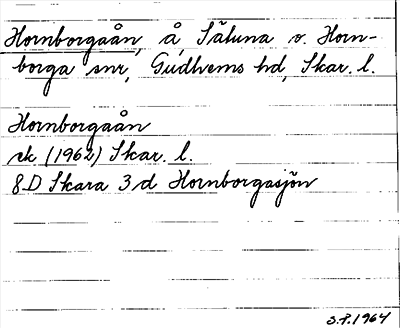 Hornborgaån, å, Sätuna v. Horn-
borga snr, Gudhems hd, Skar. l.
Hornborgaån
rk (1962) Skar. l.
8D Skara 3 d Hornborgasjön
S.P.1964